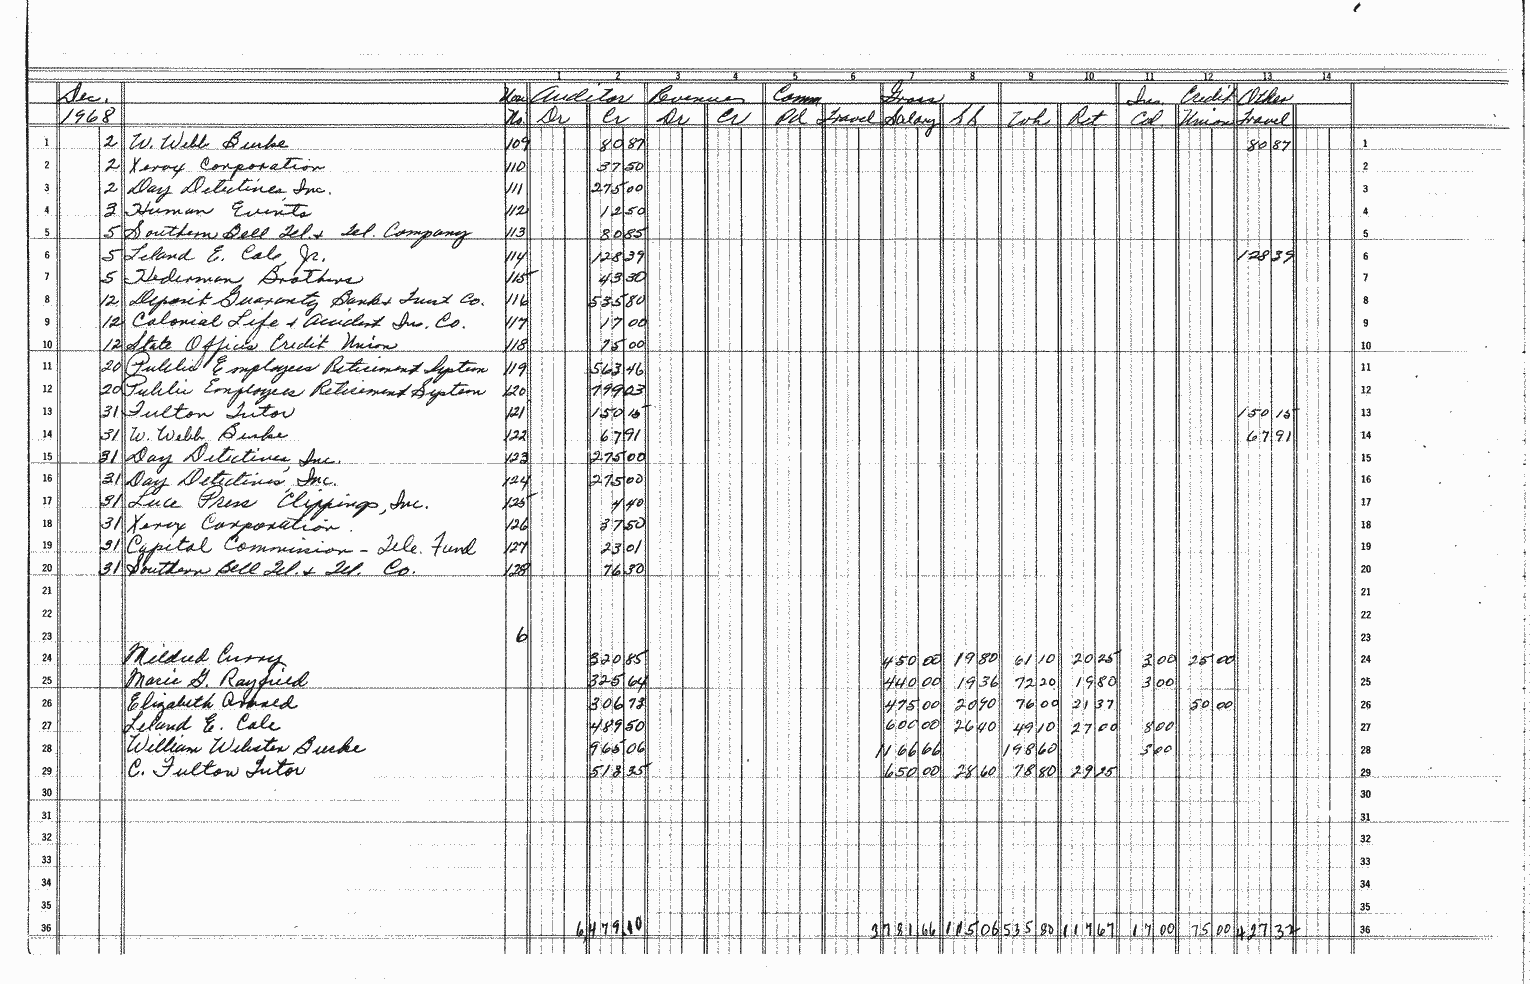 1 2 3 4 5 6 7 8 9 10 11 12 13 14
Dec. War Auditor Revenue Comm Gross Ins. Credit Other
1968 No. Dr Cr Dr Cr Pd Travel Salary S S Wh Ret Col. Union Travel
1 2 W. Webb Burke 109 80 87 80 87 1
2 2 Xerox Corporation 110 37 50 2
3 2 Day Detectives Inc. 111 275 00 3
4 3 Human Events 112 12 50 4
5 5 Southern Bell Tel. & Tel. Company 113 80 85 5
6 5 Leland E. Cole, Jr. 114 128 39 128 39 6
7 5 Hederman Brothers 115 43 30 7
8 12 Deposit Guaranty Bank & Trust Co. 116 535 80 8
9 12 Colonial Life & Accident Ins. Co. 117 17 00 9
10 12 State Offices Credit Union 118 75 00 10
11 20 Public Employees Retirement System 119 563 46 11
12 20 Public Employees Retirement System 120 799 03 12
13 31 Fulton Tutor 121 150 15 150 15 13
14 31 W. Webb Burke 122 67 91 67 91 14
15 31 Day Detectives, Inc. 123 275 00 15
16 31 Day Detectives, Inc. 124 275 00 16
17 31 Luce Press Clippings, Inc. 125 4 40 17
18 31 Xerox Corporation 126 37 50 18
19 31 Capital Commission - Tele. Fund 127 23 01 19
20 31 Southern Bell Tel. & Tel. Co. 128 76 30 20
21 21
22 22
23 6 23
24 Mildred Curry 320 85 450 00 19 80 61 10 20 25 3 00 25 00 24
25 Marie G. Rayfield 325 64 440 00 19 36 72 20 19 80 3 00 25
26 Elizabeth 306 73 475 00 20 90 76 00 21 37 50 00 26
27 Leland E. Cole 489 50 600 00 26 40 49 10 27 00 8 00 27
28 William Webster Burke 965 06 1166 66 198 60 3 00 28
29 C. Fulton Tutor 513 35 650 00 28 60 78 80 29 25 29
30 30
31 31
32 32
33 33
34 34
35 35
36 6,479.10 3781 66 115 06 535 80 117 67 17 00 75 00 427 32 36